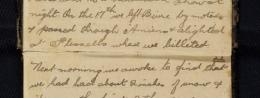 night. On the 17th we left Beure by motors
& passed through Amiens & alighted
at Flesselles where we billeted
Next morning we awoke to find that
we had had about 2 inches of snow &